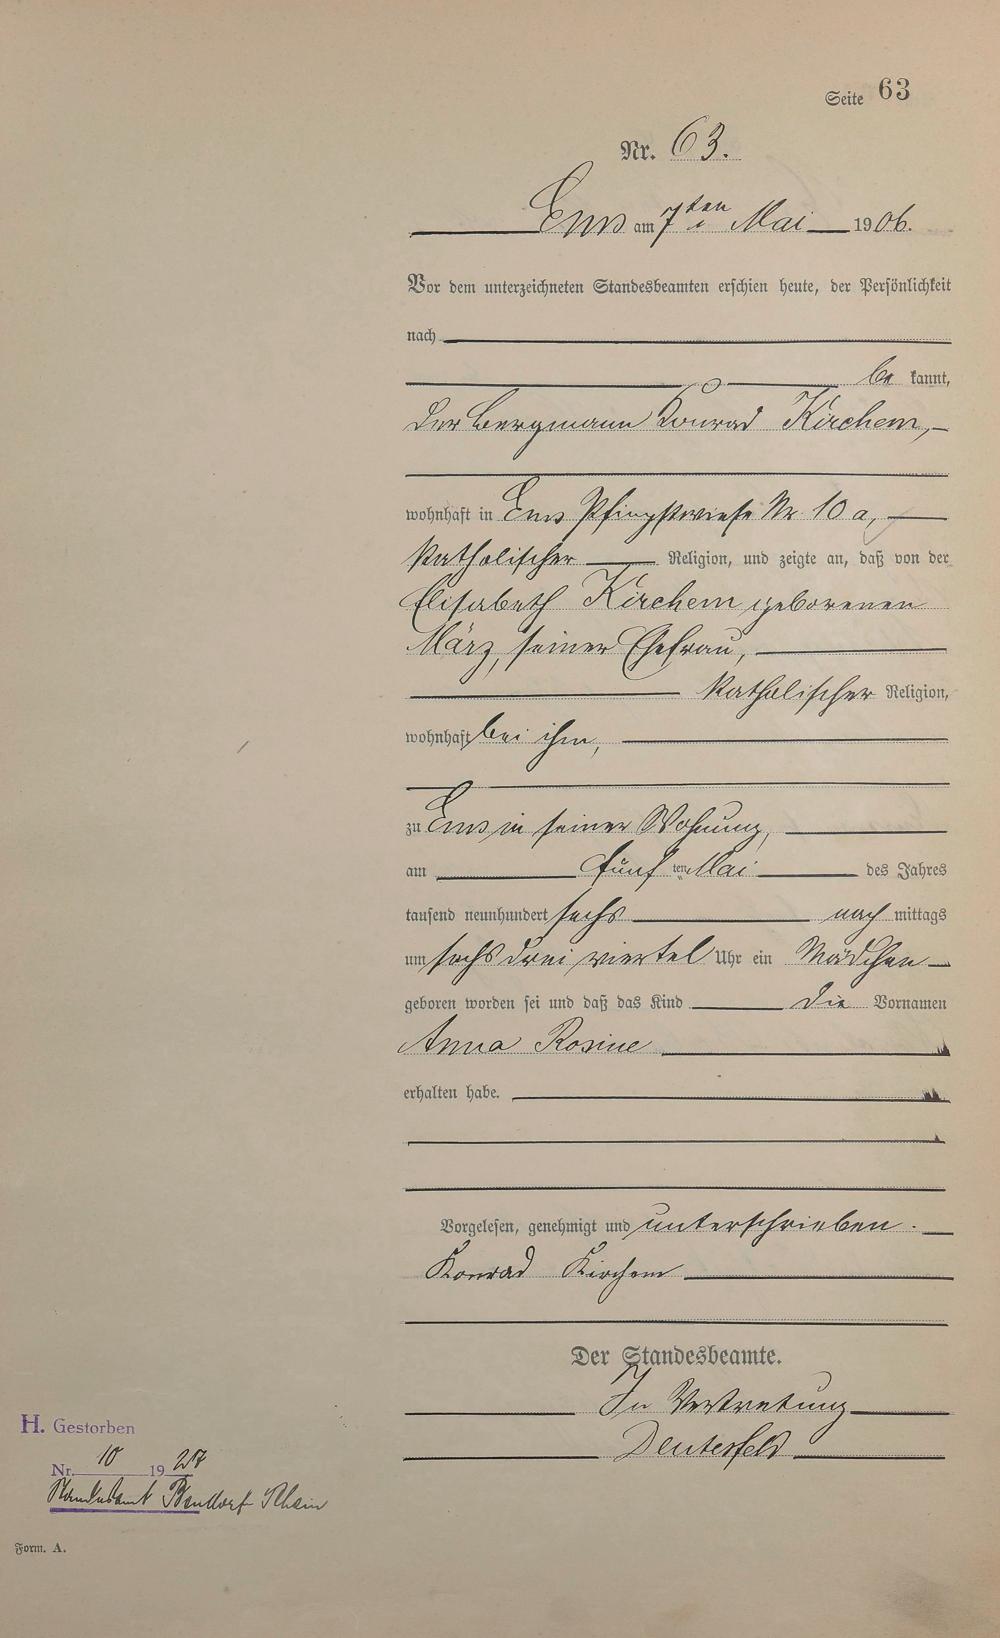 Seite 63
Nr. 63.
Ems am 7ten Mai 1906.
Vor dem unterzeichneten Standesbeamten erschien heute, der Persönlichkeit
nach
be kannt,
der Bergmann Konrad Kirchem,
wohnhaft in Ems Pfingstwiese Nr 10 a,
katholischer Religion, und zeigte an, daß von der
Elisabeth Kirchem geborenen
März, seiner Ehefrau,
katholischer Religion,
wohnhaft bei ihm,
zu Ems in seiner Wohnung,
am fünf ten Mai des Jahres
tausend neunhundert sechs nach mittags
um sechs drei viertel Uhr ein Mädchen
geboren worden sei und daß das Kind die Vornamen
Anna Rosine
erhalten habe.
Vorgelesen, genehmigt und unterschrieben.
Konrad Kirchem
Der Standesbeamte.
In Vertretung
Deutesfeld
H. Gestorben
Nr. 10 1927
Standesamt Bendorf Rhein
Form. A.